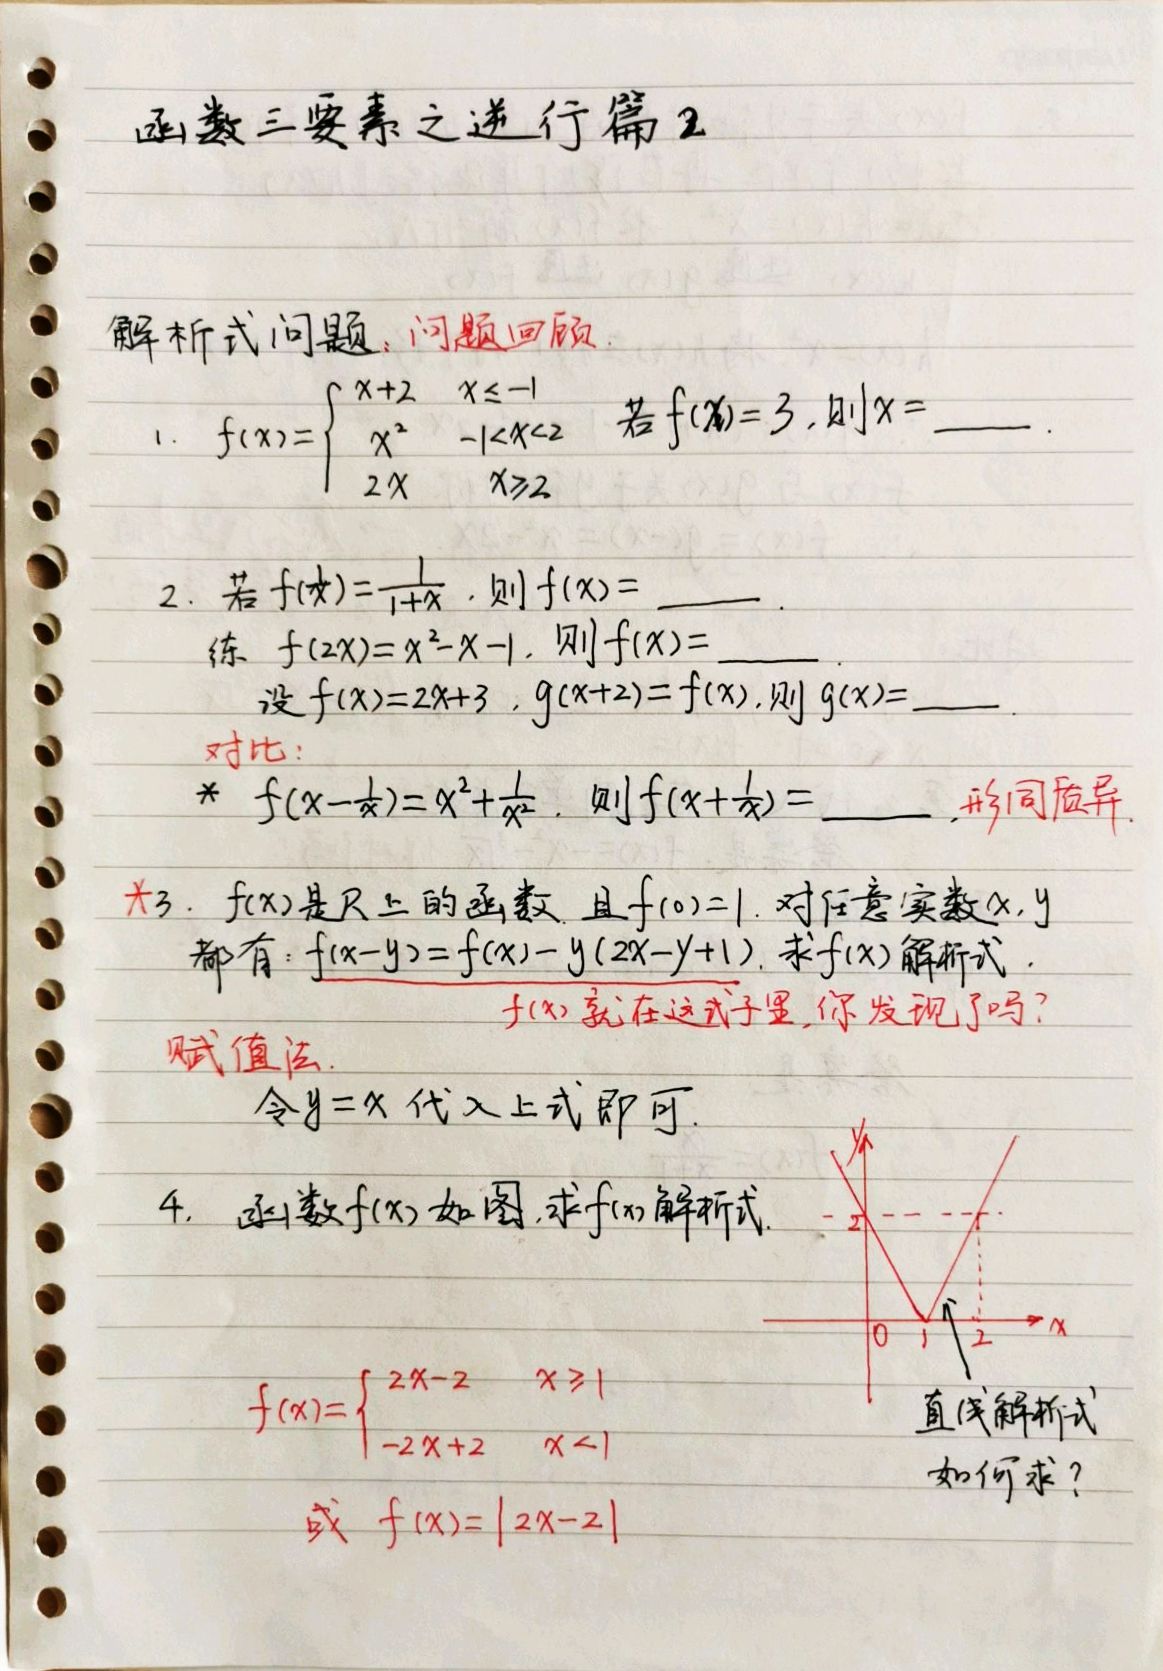 函数三要素之逆行篇2
解析式问题:问题回顾.
1. f(x)={ x+2 x≤-1
x² -1<x<2
2x x≥2
若f(x)=3,则x=____.
2. 若f(1/x)=1/(1+x),则f(x)=____.
练 f(2x)=x²-x-1,则f(x)=____.
设f(x)=2x+3,g(x+2)=f(x),则g(x)=____.
对比:
* f(x-1/x)=x²+1/x²,则f(x+1/x)=____,形同质异.
*3. f(x)是R上的函数,且f(0)=1.对任意实数x,y
都有:f(x-y)=f(x)-y(2x-y+1),求f(x)解析式.
f(x)就在这式子里,你发现了吗?
赋值法.
令y=x代入上式即可.
4. 函数f(x)如图,求f(x)解析式.
y
2
0 1 2 x
直线解析式
如何求?
f(x)={ 2x-2 x≥1
-2x+2 x<1
或 f(x)=|2x-2|